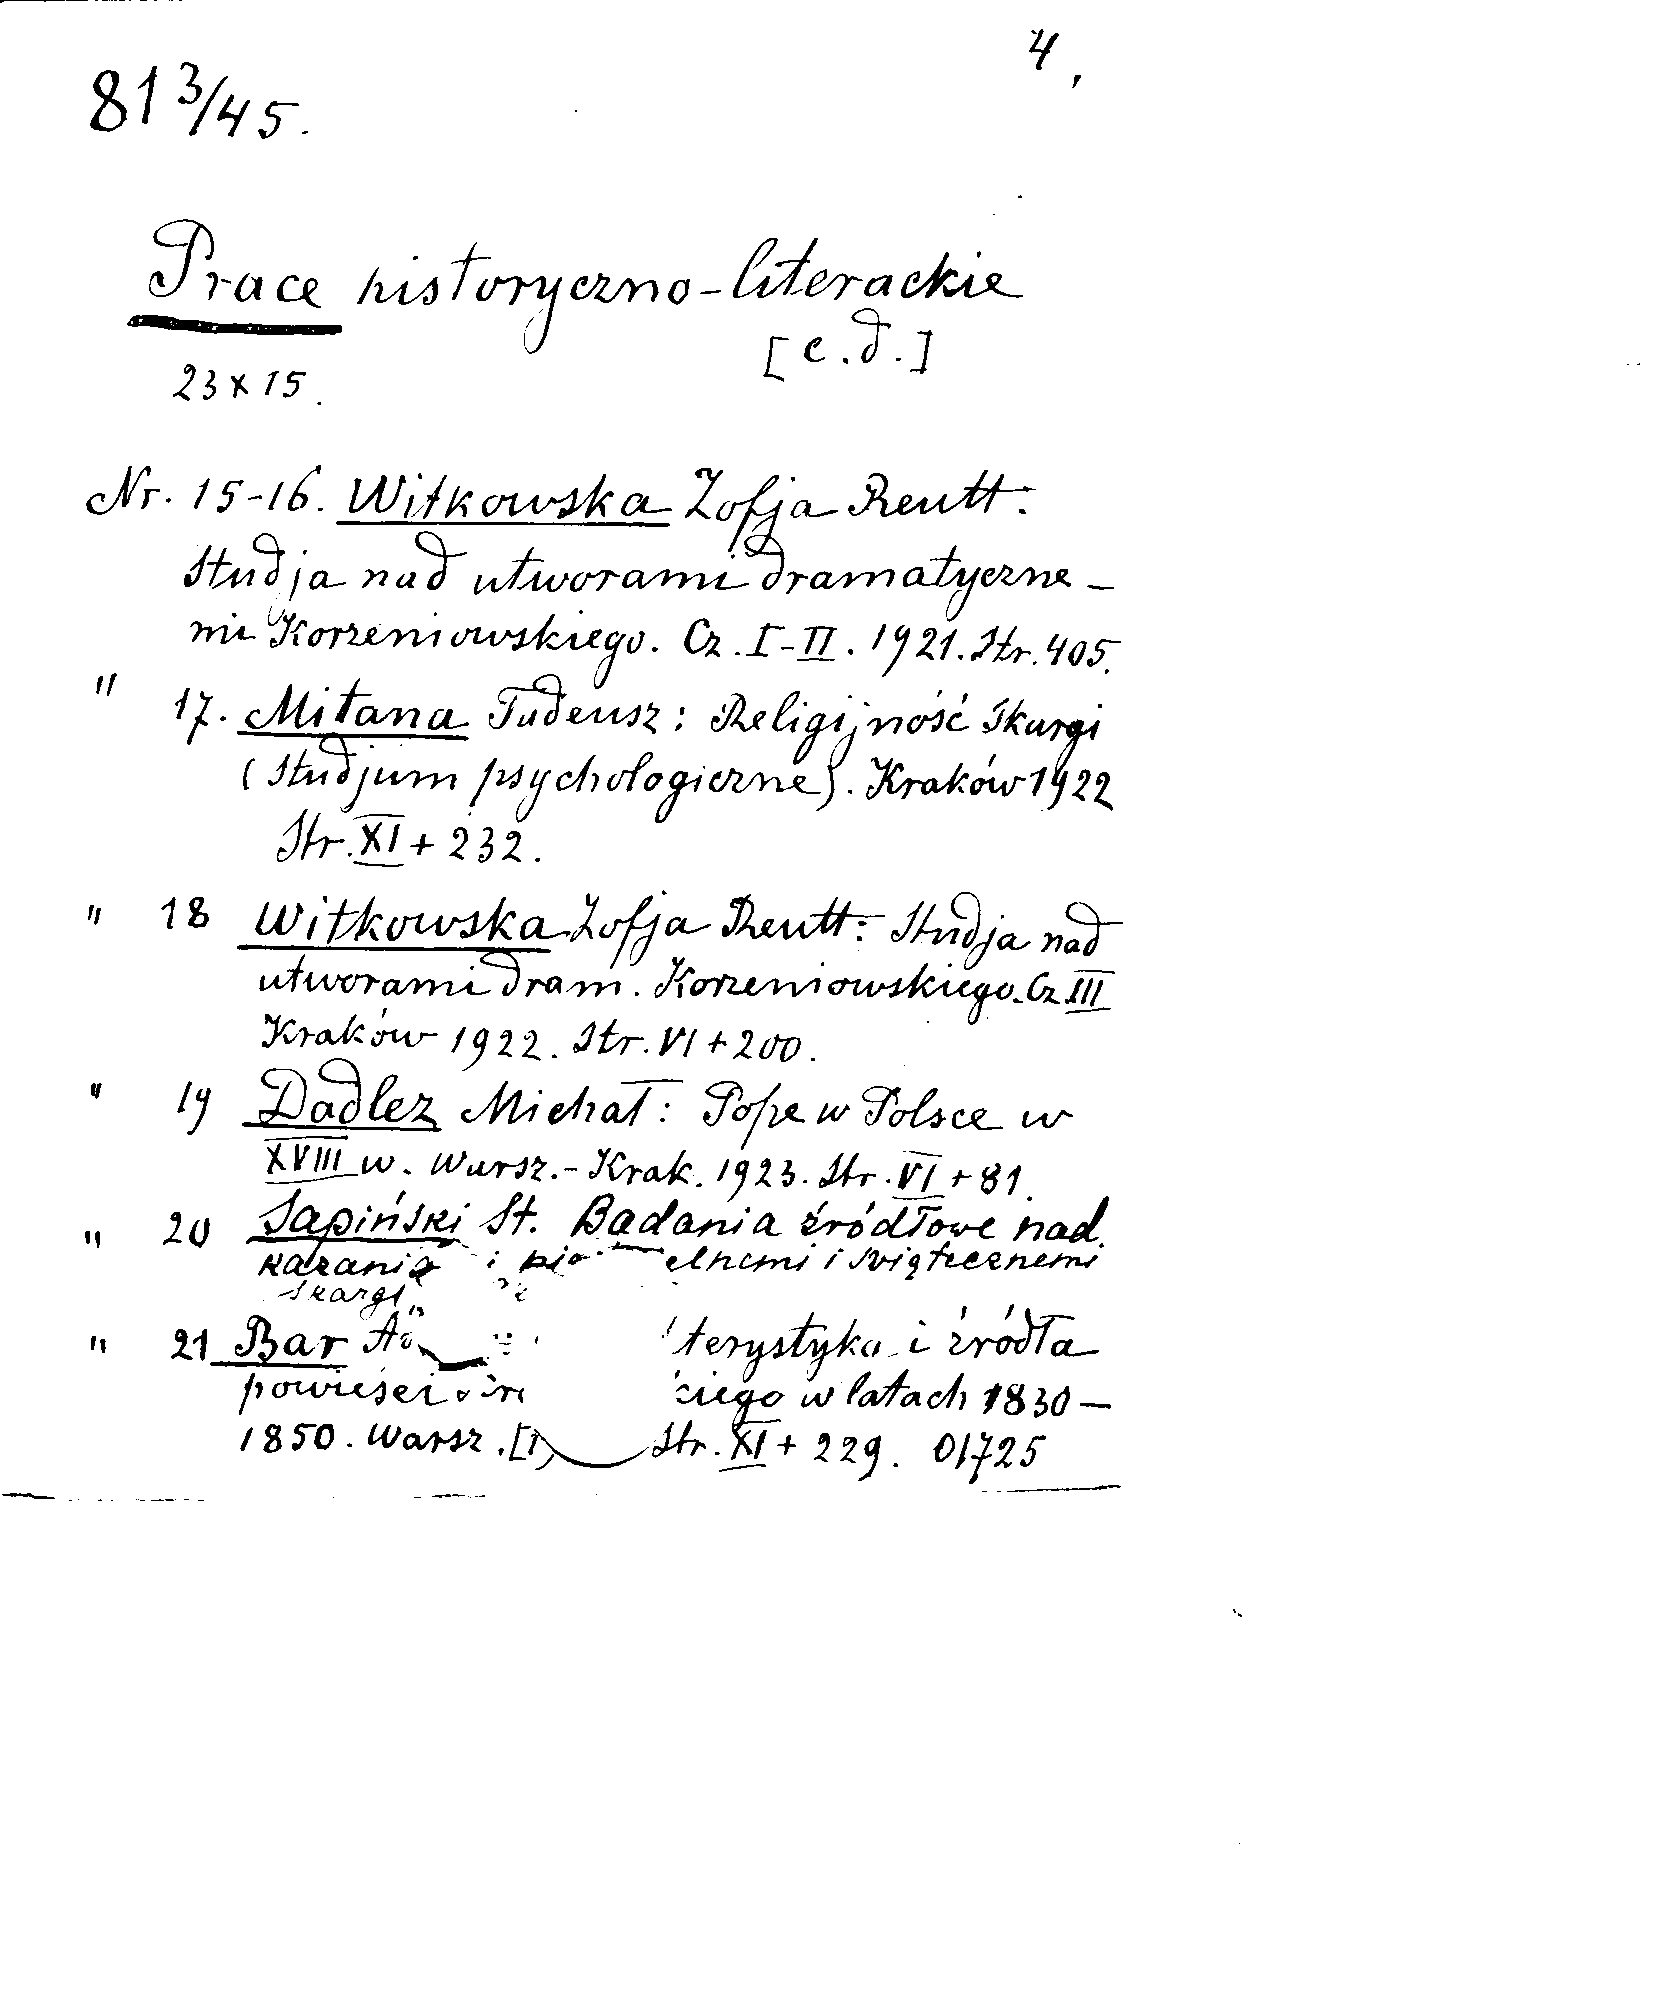 4.
81 3/45.
Prace historyczno-literackie
[c.d.]
23 x 15.
Nr. 15-16. Witkowska Zofja Reutt:
Studja nad utworami dramatyczne-
mi Korzeniowskiego. Cz. I-II. 1921. Str. 405.
" 17. Mitana Tadeusz: Religijność Skargi
(Studjum psychologiczne). Kraków 1922
Str. XI + 232.
" 18 Witkowska Zofja Reutt: Studja nad
utworami dram. Korzeniowskiego. Cz III
Kraków 1922. Str. VI + 200.
" 19 Dadlez Michał: Pope w Polsce w
XVIII w. Warsz.-Krak. 1923. Str. VI + 81.
" 20 Sapiński St. Badania źródłowe nad
kazania i elnemi i świątecznemi
Skargi
" 21 Bar terystyka i źródła
powieści kiego w latach 1830-
1850. Warsz. Str. XI + 229. 01725